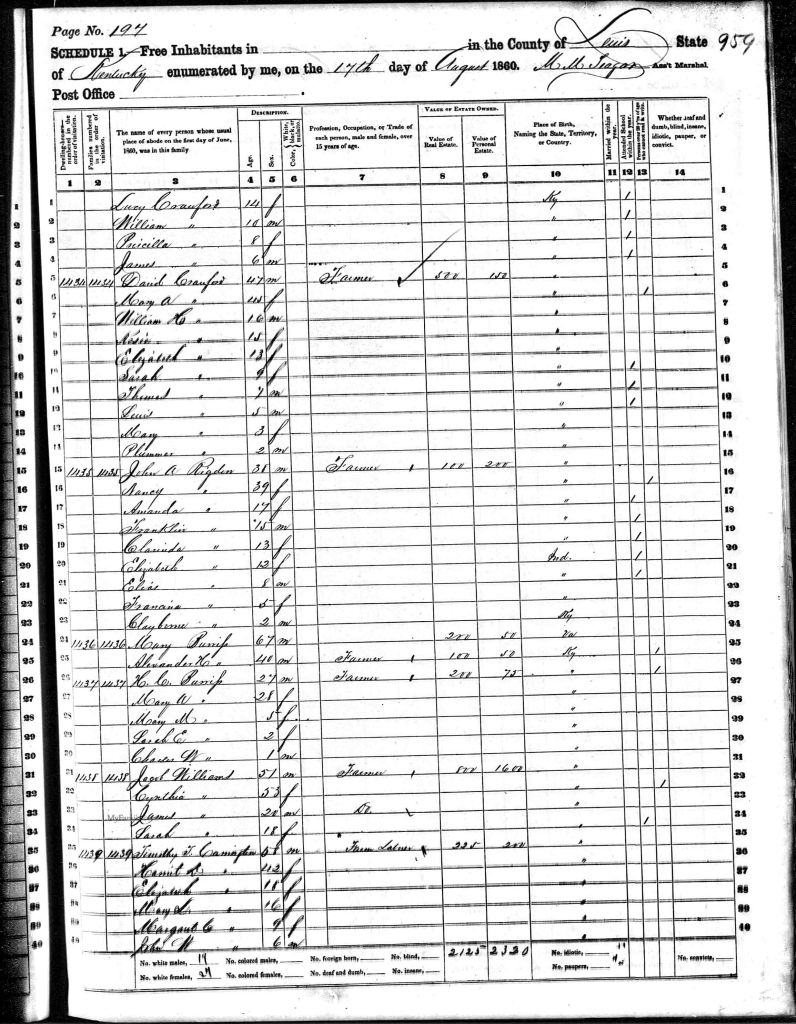 Page No. 197
SCHEDULE 1.—Free Inhabitants in in the County of Lewis State 959
of Kentucky enumerated by me, on the 17th day of August 1860. Ass't Marshal
Post Office
Dwelling-houses— numbered in the order of visitation.
Families numbered in the order of visitation.
The name of every person whose usual place of abode on the first day of June, 1860, was in this family
DESCRIPTION.
Age.
Sex.
Color, White, black, or mulatto.
Profession, Occupation, or Trade of each person, male and female, over 15 years of age.
VALUE OF ESTATE OWNED.
Value of Real Estate.
Value of Personal Estate.
Place of Birth, Naming the State, Territory, or Country.
Married within the year.
Attended School within the year.
Whether deaf and dumb, blind, insane, idiotic, pauper, or convict.
1 2 3 4 5 6 7 8 9 10 11 12 13 14
1 Lucy Crawford 14 f Ky 1
2 William " 10 m " 1
3 Priscilla " 8 f " 1
4 James " 6 m " 1
5 1434 1434 David Crawford 47 m Farmer 500 150 "
6 Mary A " 45 f " 1
7 William H " 16 m "
8 " 15 f "
9 Elizabeth " 13 f "
10 Sarah " 9 f " 1
11 Thomas " 7 m " 1
12 Lewis " 5 m " 1
13 Mary " 3 f "
14 Plummer " 2 m "
15 1435 1435 John A Rigden 38 m Farmer 100 200 "
16 Nancy " 39 f " 1
17 Amanda " 17 f " 1
18 Franklin " 15 m " 1
19 Clarinda " 13 f " 1
20 Elizabeth " 12 f Ind. 1
21 Elias " 8 m " 1
22 " 5 f "
23 Clayborne " 2 m Ky
24 1436 1436 Mary 67 200 50 Va
25 Alexander H " 40 m Farmer 100 50 Ky 1
26 1437 1437 H. C. 27 m Farmer 200 75 " 1
27 Mary A " 28 f "
28 Mary M " 5 f "
29 Sarah E " 2 f "
30 Charles W " 1 m "
31 1438 1438 Jacob Williams 51 m Farmer 800 1600 "
32 Cynthia " 53 f " 1
33 James " 20 m Do. "
34 Sarah " 18 f " 1
35 1439 1439 Timothy T. Carrington 58 m Farm 225 200 "
36 " 42 f "
37 Elizabeth " 18 f "
38 Mary " 16 f "
39 Margaret C " 9 f "
40 John W " 6 m "
No. white males, 19 No. colored males, No. foreign born, No. blind, 2125 2320 No. idiotic, No. convicts,
No. white females, No. colored females, No. deaf and dumb, No. insane, No. paupers,